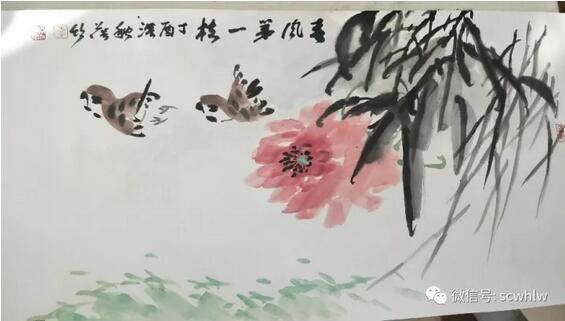 春风第一枝 丁酉深秋
微信号: scwhlw